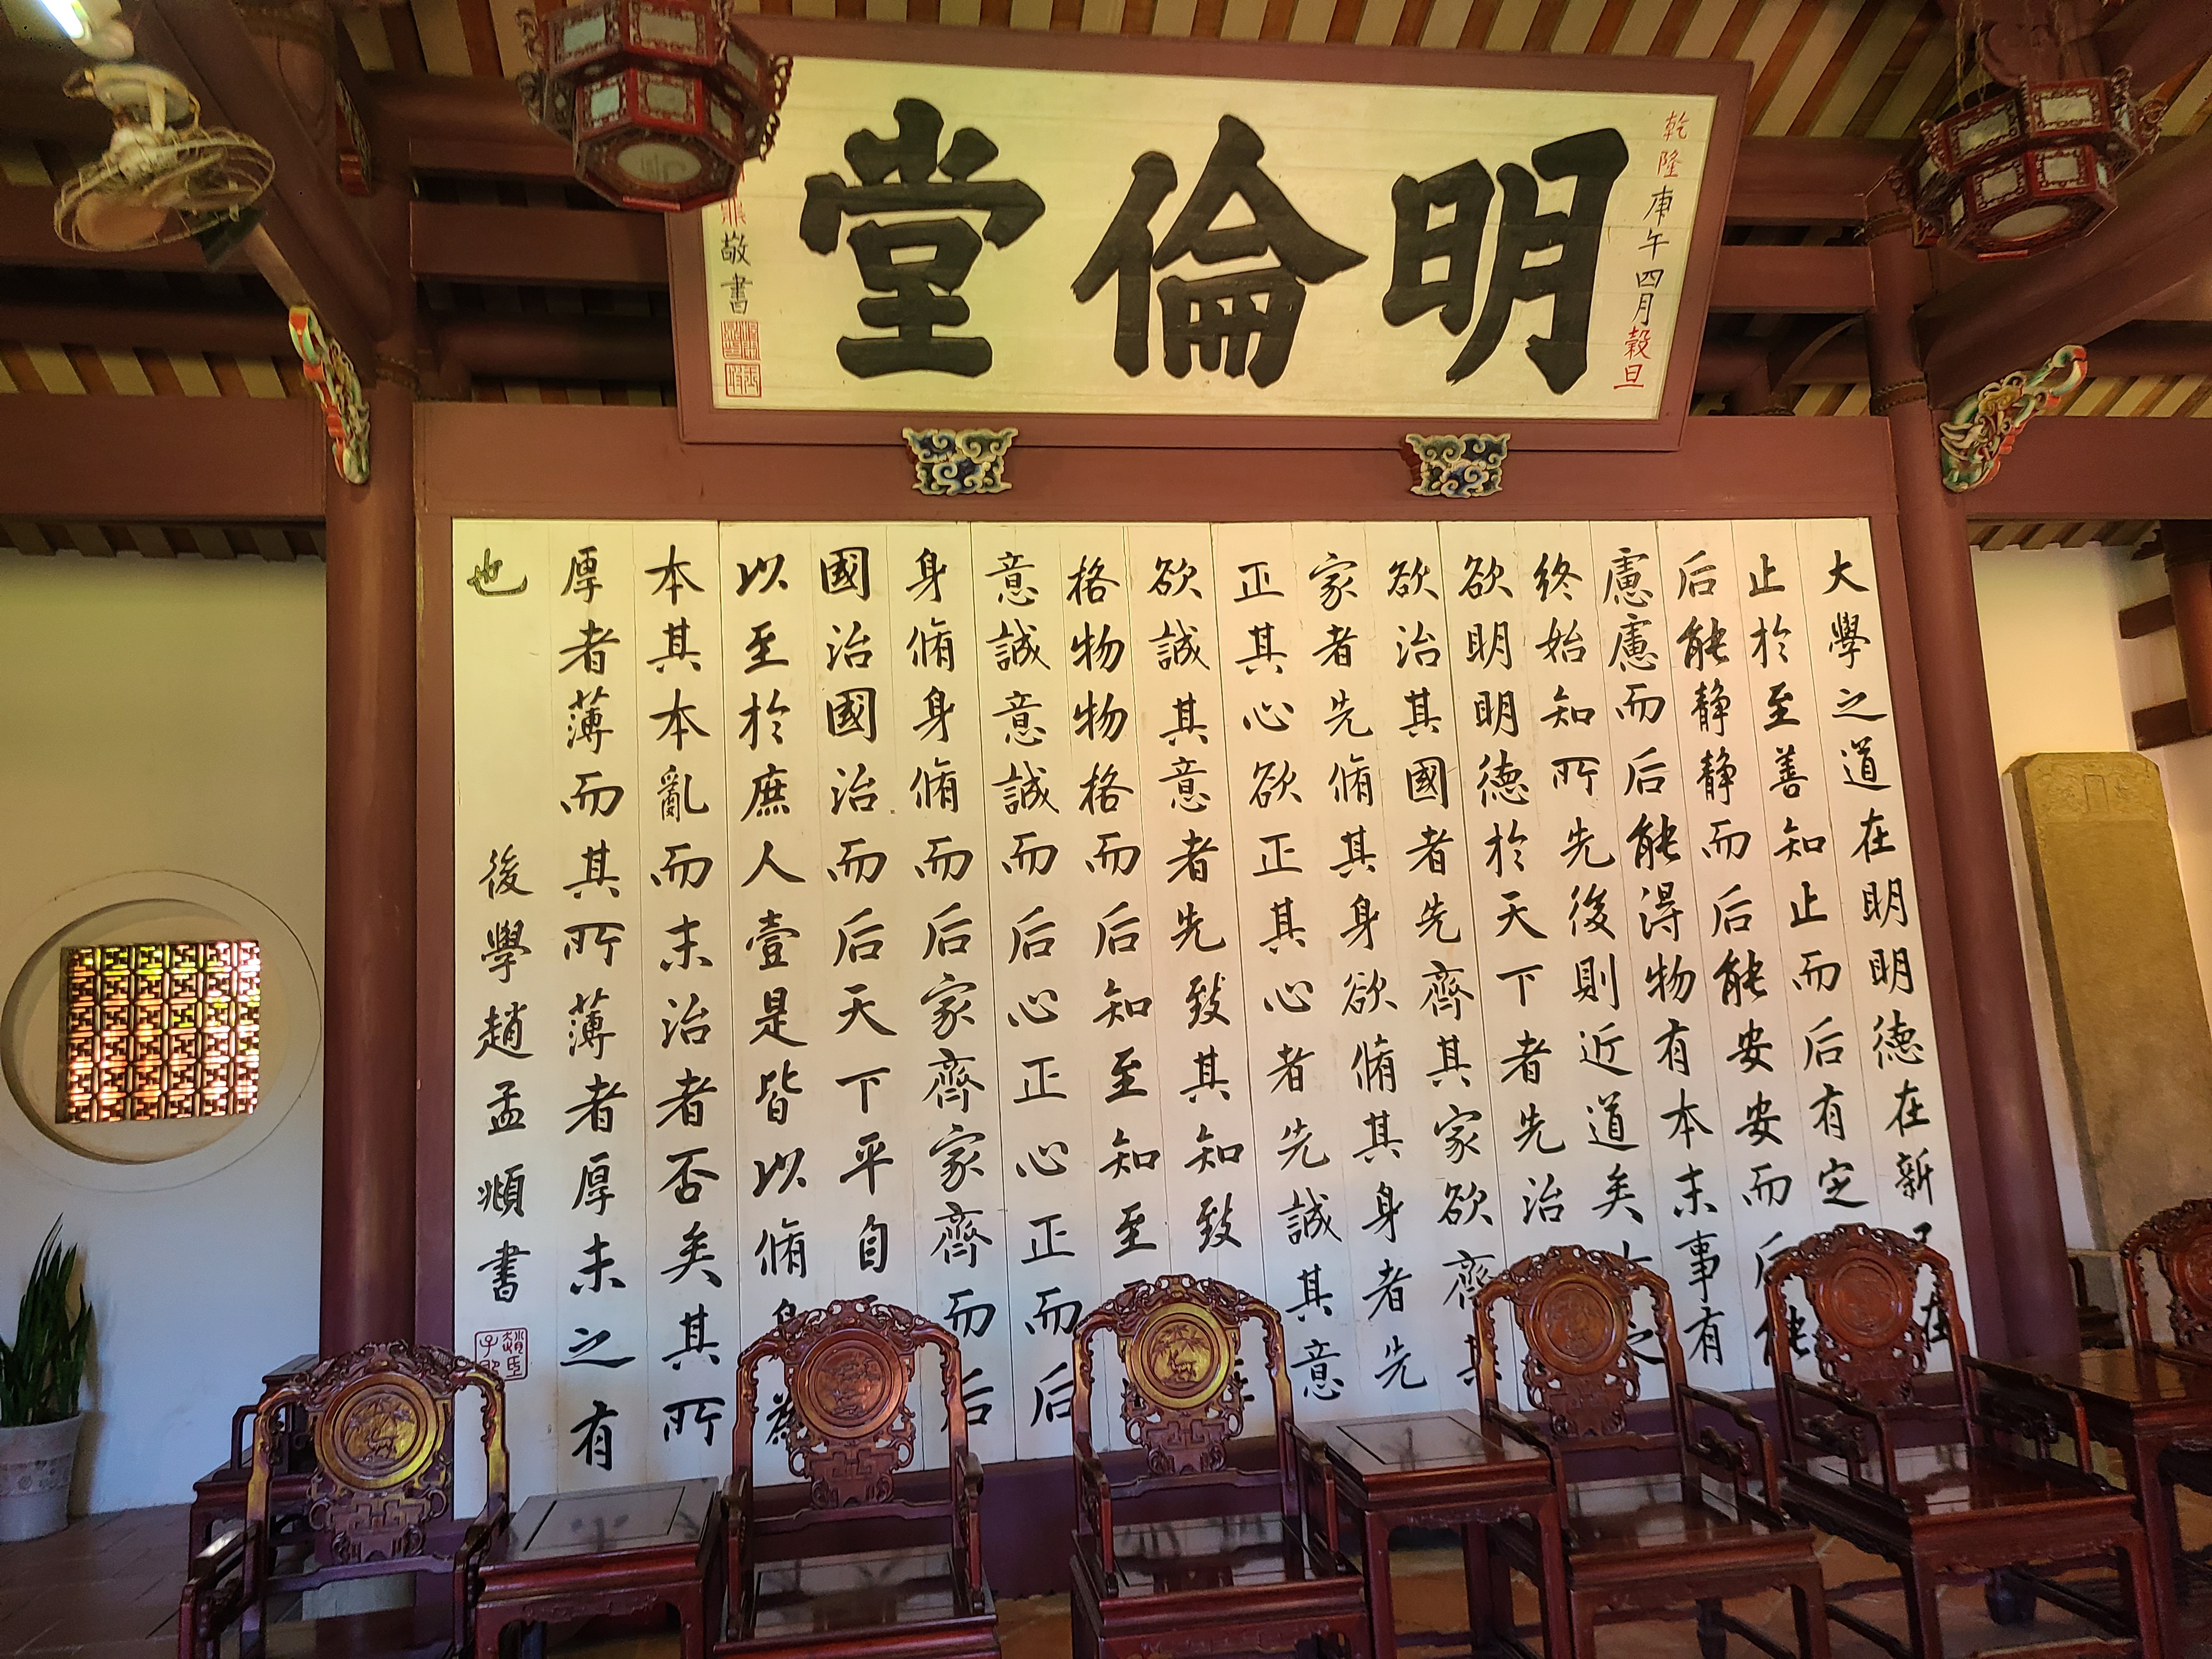 明倫堂
乾隆庚午四月穀旦
鼎敬書
大學之道在明明德在新在
止於至善知止而后有定
后能静静而后能安安而后能
慮慮而后能得物有本末事有
終始知所先後則近道矣之
欲明明德於天下者先治
欲治其國者先齊其家欲齊其
家者先脩其身欲脩其身者先
正其心欲正其心者先誠其意
欲誠其意者先致其知致
格物物格而后知至知至
意誠意誠而后心正心正而后
身脩身脩而后家齊家齊而后
國治國治而后天下平自
以至於庶人壹是皆以脩身為
本其本亂而末治者否矣其所
厚者薄而其所薄者厚未之有
也
後學趙孟頫書